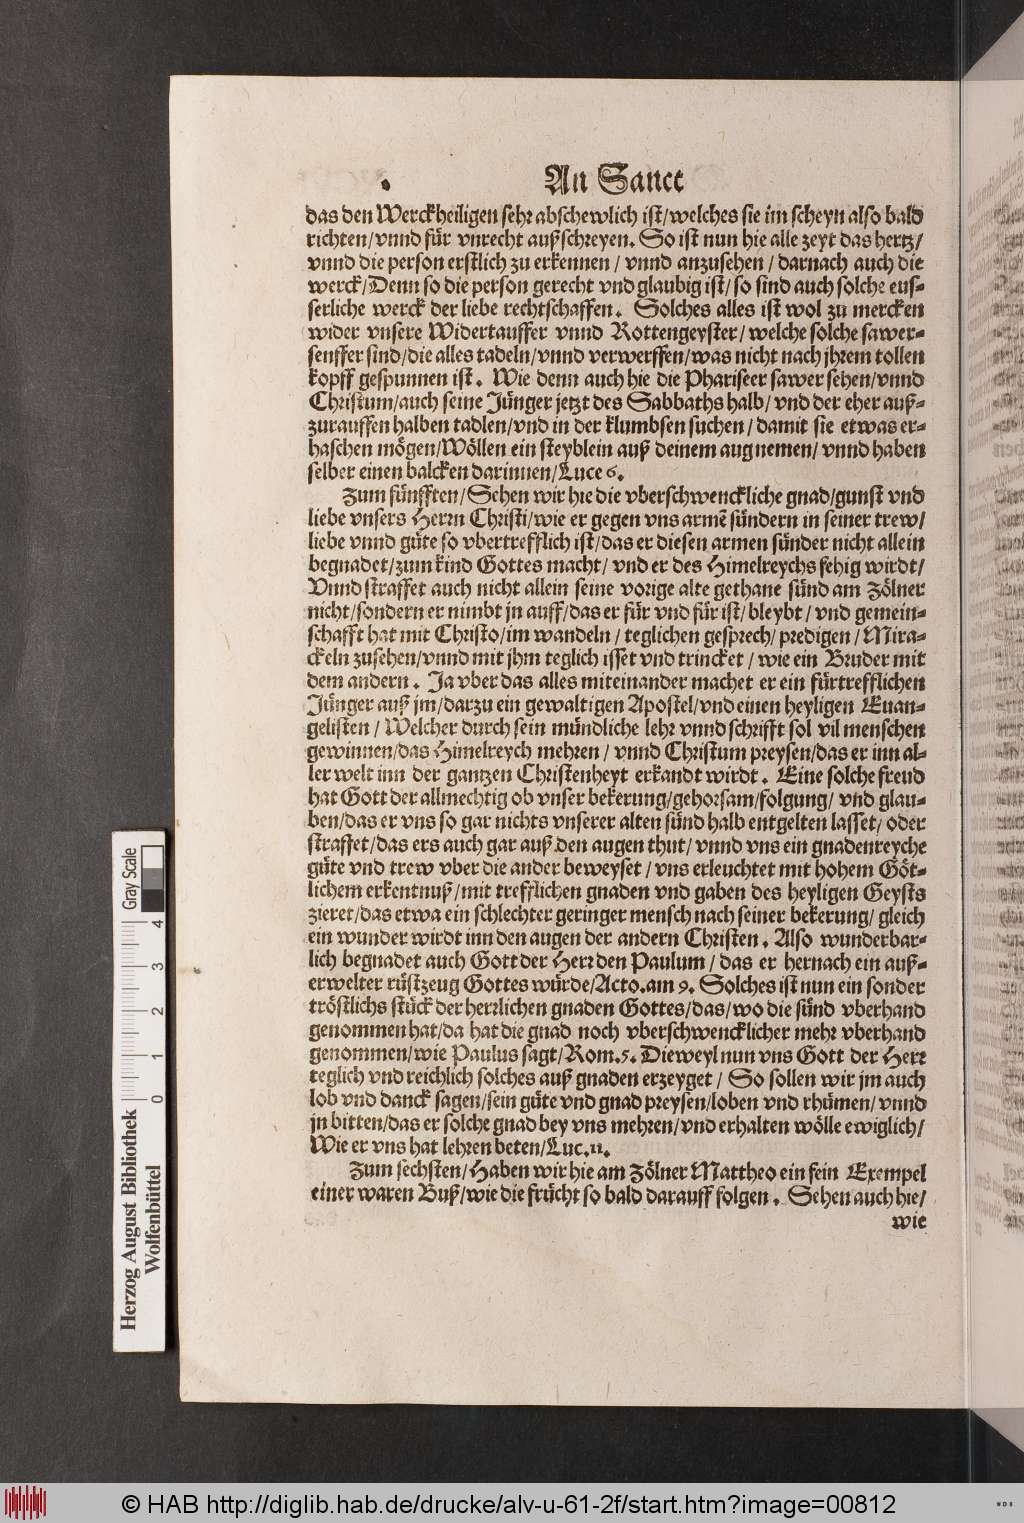 An Sanct
das den Werckheiligen sehr abschewlich ist/welches sie im scheyn also bald
richten/vnnd für vnrecht außschreyen. So ist nun hie alle zeyt das hertz/
vnnd die person erstlich zu erkennen/ vnnd anzusehen/ darnach auch die
werck/Denn so die person gerecht vnd glaubig ist/so sind auch solche eus-
serliche werck der liebe rechtschaffen. Solches alles ist wol zu mercken
wider vnsere Widertauffer vnnd Rottengeyster/welche solche sawer-
senffer sind/die alles tadeln/vnnd verwerffen/was nicht nach jhrem tollen
kopff gespunnen ist. Wie denn auch hie die Phariseer sawer sehen/vnnd
Christum/auch seine Jünger jetzt des Sabbaths halb/ vnd der eher auß-
zurauffen halben tadlen/vnd in der klumbsen suchen/damit sie etwas er-
haschen mögen/Wöllen ein steyblein auß deinem aug nemen/ vnnd haben
selber einen balcken darinnen/Luce 6.
Zum fünfften/Sehen wir hie die vberschwenckliche gnad/gunst vnd
liebe vnsers Herrn Christi/wie er gegen vns armē sündern in seiner trew/
liebe vnnd güte so vbertrefflich ist/das er diesen armen sünder nicht allein
begnadet/zum kind Gottes macht/ vnd er des Himelreychs fehig wirdt/
Vnnd straffet auch nicht allein seine vorige alte gethane sünd am Zölner
nicht/sondern er nimbt jn auff/das er für vnd für ist/bleybt/ vnd gemein-
schafft hat mit Christo/im wandeln/ teglichen gesprech/ predigen/ Mira-
ckeln zusehen/vnnd mit jhm teglich isset vnd trincket/ wie ein Bruder mit
dem andern. Ja vber das alles miteinander machet er ein fürtrefflichen
Jünger auß jm/darzu ein gewaltigen Apostel/vnd einen heyligen Euan-
gelisten/ Welcher durch sein mündliche lehr vnnd schrifft sol vil menschen
gewinnen/das Himelreych mehren/ vnnd Christum preysen/das er inn al-
ler welt inn der gantzen Christenheyt erkandt wirdt. Eine solche freud
hat Gott der allmechtig ob vnser bekerung/gehorsam/folgung/ vnd glau-
ben/das er vns so gar nichts vnserer alten sünd halb entgelten lasset/ oder
straffet/das ers auch gar auß den augen thut/ vnnd vns ein gnadenreyche
güte vnd trew vber die ander beweyset/ vns erleuchtet mit hohem Göt-
lichem erkentnuß/mit trefflichen gnaden vnd gaben des heyligen Geysts
zieret/das etwa ein schlechter geringer mensch nach seiner bekerung/ gleich
ein wunder wirdt inn den augen der andern Christen. Also wunderbar-
lich begnadet auch Gott der Herr den Paulum/ das er hernach ein auß-
erwelter rüstzeug Gottes würde/Acto.am 9. Solches ist nun ein sonder
tröstlichs stück der herrlichen gnaden Gottes/das/wo die sünd vberhand
genommen hat/da hat die gnad noch vberschwencklicher mehr vberhand
genommen/wie Paulus sagt/Rom.5. Dieweyl nun vns Gott der Herr
teglich vnd reichlich solches auß gnaden erzeyget/ So sollen wir jm auch
lob vnd danck sagen/sein güte vnd gnad preysen/loben vnd rhümen/ vnnd
jn bitten/das er solche gnad bey vns mehren/vnd erhalten wölle ewiglich/
Wie er vns hat lehren beten/Luc.11.
Zum sechsten/Haben wir hie am Zölner Mattheo ein fein Exempel
einer waren Buß/wie die frücht so bald darauff folgen. Sehen auch hie/
wie
Gray Scale
0 1 2 3 4
Herzog August Bibliothek
Wolfenbüttel
© HAB http://diglib.hab.de/drucke/alv-u-61-2f/start.htm?image=00812